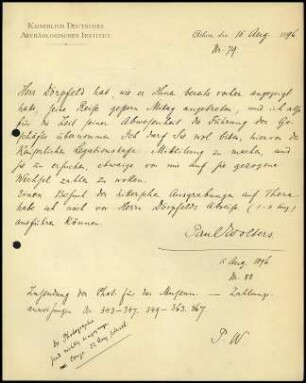 KAISERLICH DEUTSCHES
ARCHÄOLOGISCHES INSTITUT.
Athen, den 15 Aug 1896
Nr. 79
Herr Dörpfeld hat, wo er Ihnen bereits vorher angezeigt
habe, seine Reise gestern Mittag angetreten, und ich also
für die Zeit seiner Abwesenheit die Führung der Ge-
schäfte übernommen. Ich darf Sie wol bitten, hiervon der
Kaiserlichen Legationskasse Mitteilung zu machen, und
sie zu ersuchen, etwaige von mir auf sie gezogene
Wechsel zahlen zu wollen.
Einen Besuch der Ausgrabungen auf Thera
habe ich noch vor Herrn Dörpfelds Abreise
ausführen können.
Paul Wolters.
15 Aug. 1896
Nr. 80
Zusendung der Phot. für das Museum. — Zahlungs-
anweisungen Nr. 343-347. 349-363. 367.
P. W
Die Photographien
sind